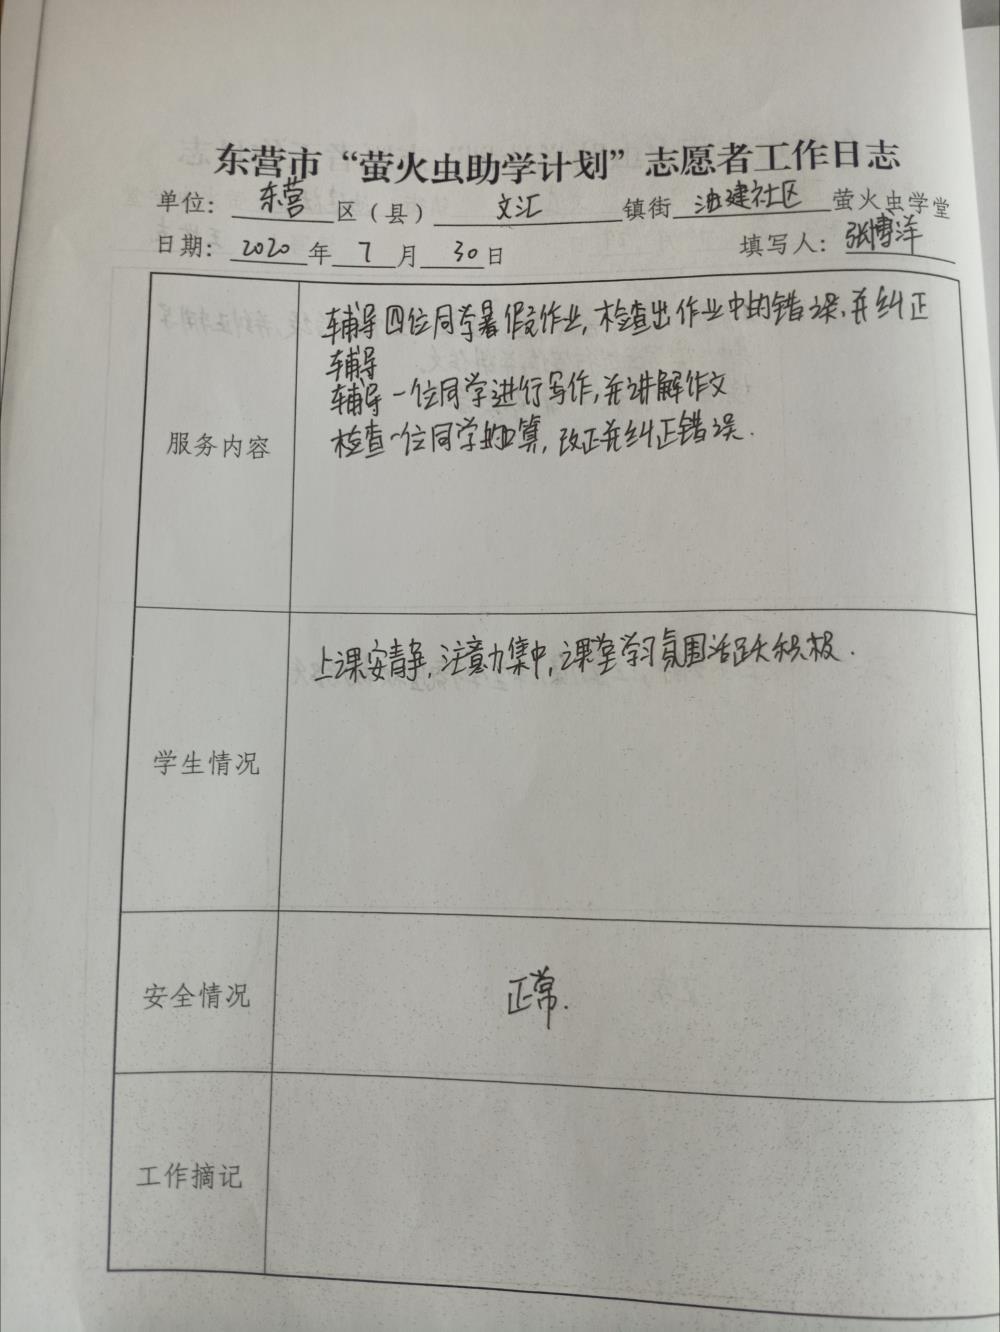 东营市“萤火虫助学计划”志愿者工作日志
单位：东营区（县）文汇镇街油建社区萤火虫学堂
日期：2020年7月30日 填写人：张博洋
服务内容
辅导四位同学暑假作业，检查出作业中的错误，并纠正
辅导
辅导一位同学进行写作，并讲解作文
检查一位同学的口算，改正并纠正错误.
学生情况
上课安静，注意力集中，课堂学习氛围活跃积极.
安全情况
正常.
工作摘记